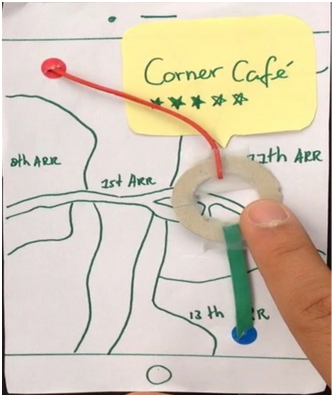 Corner Café
8th ARR
1st ARR
11th ARR
13th